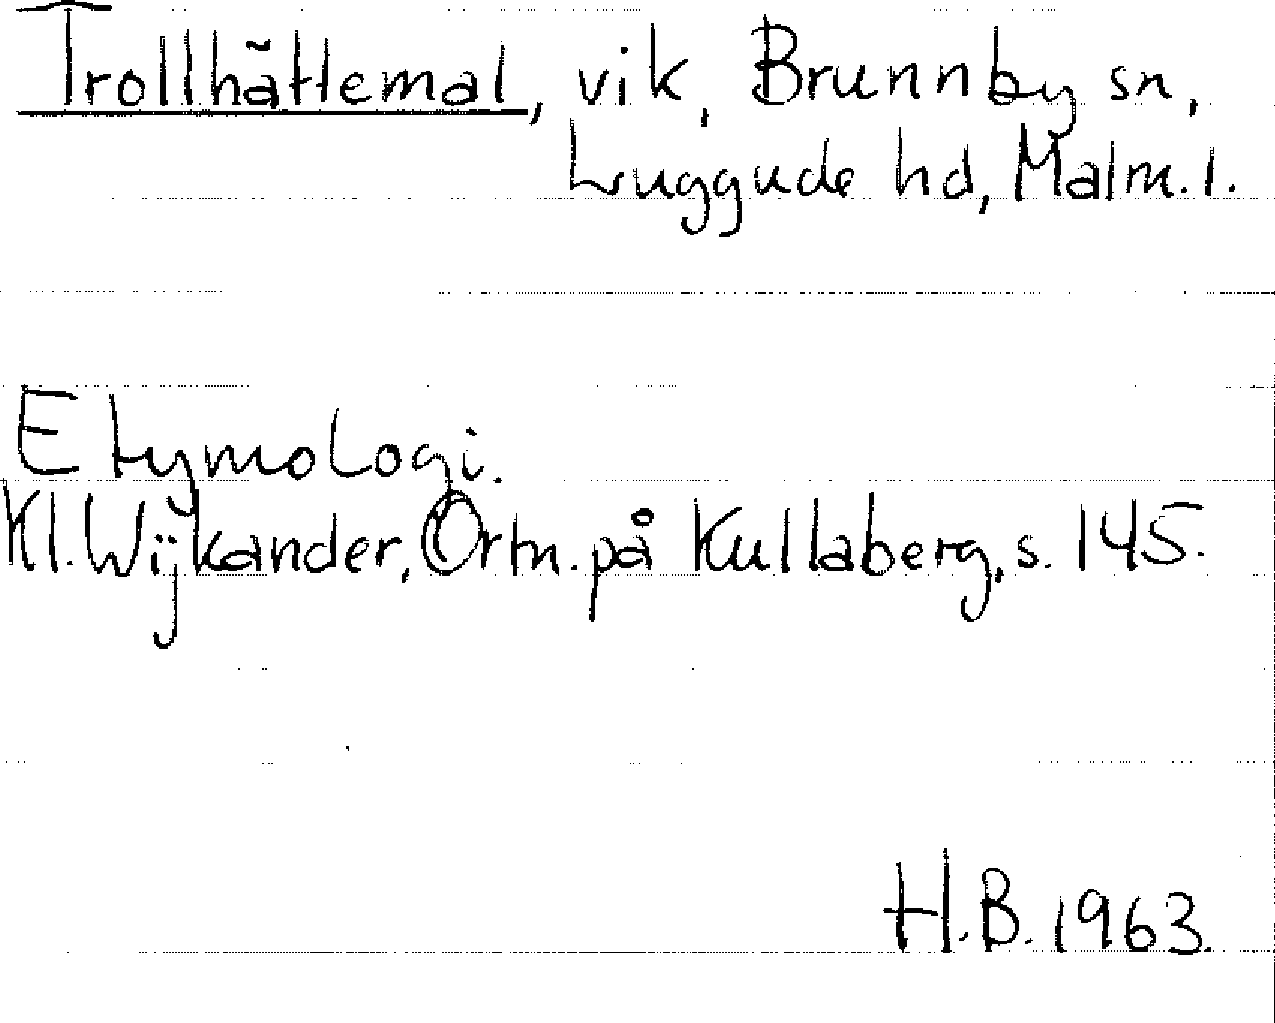 Trollhättemal, vik, Brunnby sn,
Luggude hd, Malm. l.
Etymologi.
Kl. Wijkander, Ortn. på Kullaberg, s. 145.
H.B. 1963.